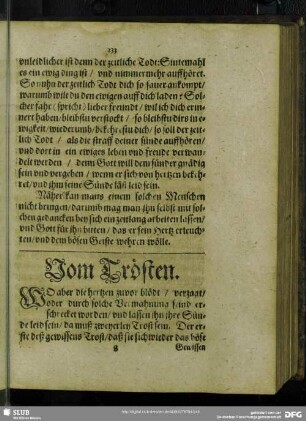 133
vnleidlicher ist denn der zeitliche Todt: Sintemahl
es ein ewig ding ist / vnd nimmermehr auffhöret.
So nuhn der zeitlich Todt dich so sawer ankompt /
warumb wilt du den ewigen auff dich laden? Sol-
cher fahr (sprich) lieber freundt / wil ich dich erin-
nert haben / bleibstu verstockt / so bleibstu dirs in e-
wigkeit / wiederumb / bekehrestu dich / so soll der zeit-
lich Todt / als die straff deiner sünde auffhören /
vnd dort in ein ewiges leben vnd freude verwan-
delt werden / denn Gott will dem sünder gnädig
sein vnd vergeben / wenn er sich von hertzen bekeh-
ret / vnd ihm seine Sünde läst leid sein.
Näher kan mans einem solchen Menschen
nicht bringen / darumb mag man ihn selbst mit sol-
chen gedancken bey sich ein zeitlang arbeiten lassen /
vnd Gott für ihn bitten / das er sein Hertz erleuch-
ten / vnd dem bösen Geiste wehren wölle.
Vom Trösten.
WO aber die hertzen zuvor blödt / verzagt /
oder durch solche Vermahnung seind er-
schrecket worden / vnd lassen ihn ihre Sün-
de leid sein / da muß zweyerley Trost sein. Der er-
ste deß gewissens Trost / daß sie sich wieder das böse
Gewissen
SLUB
Wir führen Wissen.